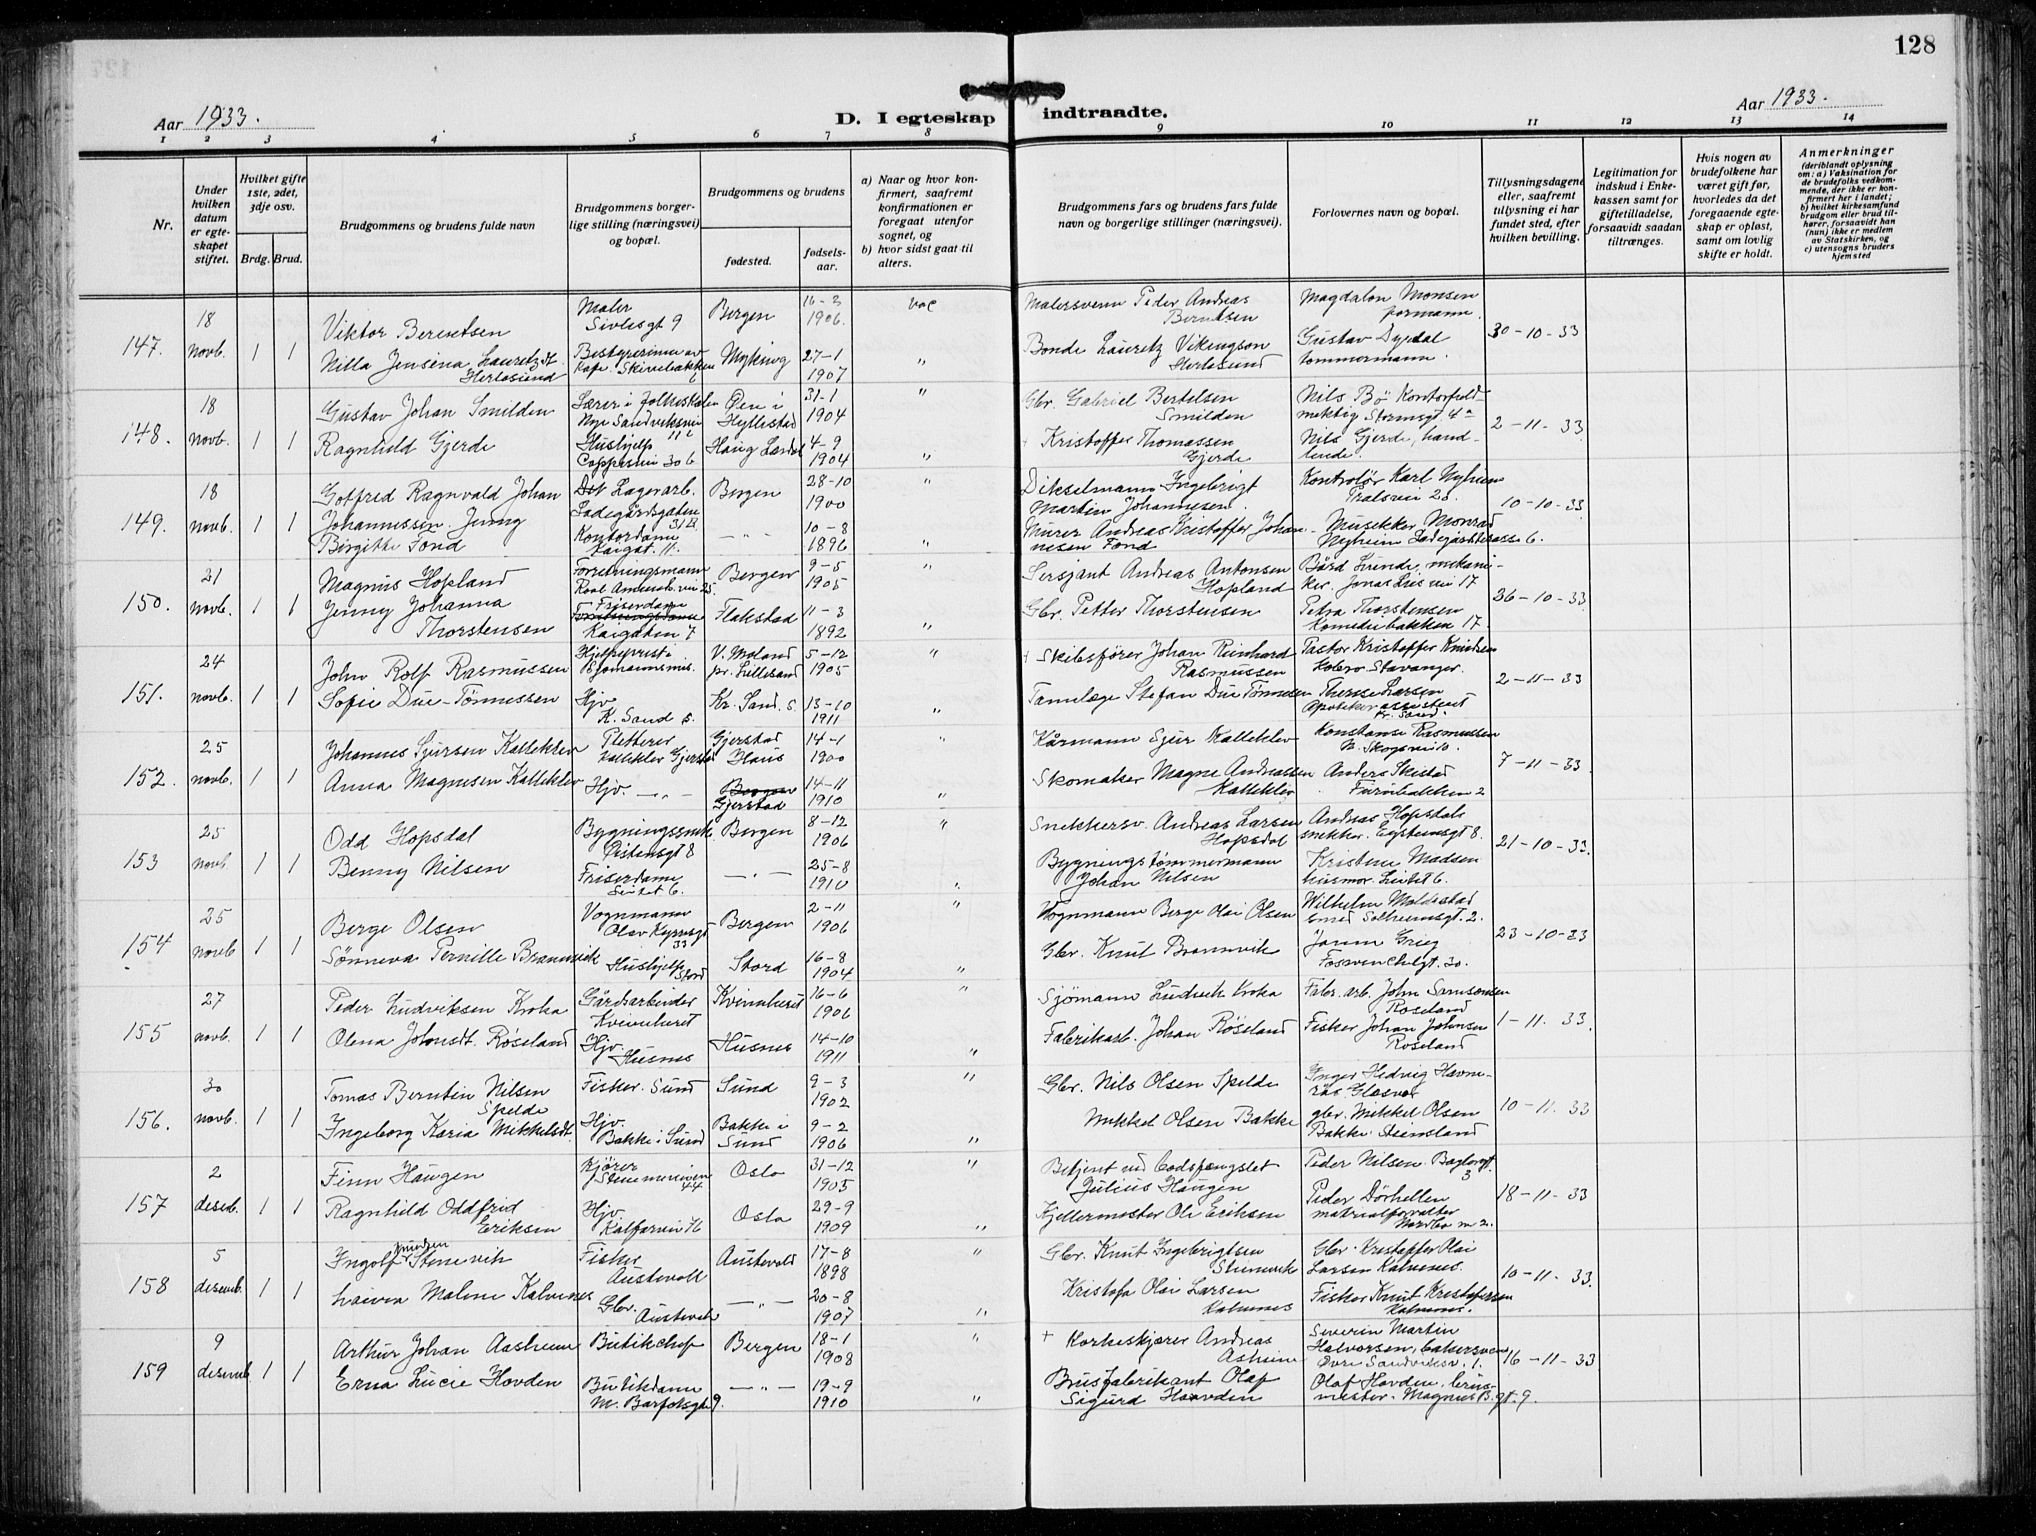 128
Aar 1933.
D. I egteskap indtraadte.
Aar 1933.
1 2 3 4 5 6 7 8 9 10 11 12 13 14
Nr.
Under hvilken datum er egteskapet stiftet.
Hvilket gifte 1ste, 2det, 3dje osv.
Brdg. Brud.
Brudgommens og brudens fulde navn
Brudgommens borgerlige stilling (næringsvei) og bopæl.
Brudgommens og brudens
fødested.
fødselsaar.
a) Naar og hvor konfirmert, saafremt konfirmationen er foregaat utenfor sognet, og
b) hvor sidst gaat til alters.
Brudgommens fars og brudens fars fulde navn og borgerlige stillinger (næringsvei).
Forlovernes navn og bopæl.
Tillysningsdagene eller, saafremt tillysning ei har fundet sted, efter hvilken bevilling.
Legitimation for indskud i Enkekassen samt for giftetilladelse, forsaavidt saadan tiltrænges.
Hvis nogen av brudefolkene har været gift før, hvorledes da det foregaaende egteskap er opløst, samt om lovlig skifte er holdt.
Anmerkninger
(deriblandt oplysning om: a) Vaksination for de brudefolks vedkommende, der ikke er konfirmert her i landet; b) hvilket kirkesamfund brudgom eller brud tilhører, forsaavidt han (hun) ikke er medlem av Statskirken, og c) utensogns bruders hjemsted
147. 18 novb. 1 1
Viktor Berentsen Maler Sivlesgt 9 Bergen 16-3 1906 vac
Nilla Jensina Lauretzdt. Herløsund Bestyrerinne av Kafe. Skivebakken Myking 27-1 1907 "
Malersvenn Peder Andreas Berntsen Magdalon Monsen formann.
Bonde Lauretz Vikingson Herløsund Gustav Dyrdal tømmermann. 30-10-33
148. 18 novb. 1 1
Gustav Johan Smilden Lærer i folkeskolen Nye Sandviksvei Øen i Hyllestad 31-1 1904 "
Ragnhild Gjerde Hushjelp 30 b Haug Lærdal 4-9 1904 "
Gbr. Gabriel Bertelsen Smilden Nils Bø Kontorfuldmektig Stormsgt 4a
+ Kristoffer Thomassen Gjerde Nils Gjerde, handlende. 2-11-33
149. 18 novb. 1 1
Gotfred Ragnvald Johan Johannessen Lagerarb. Ladegårdsgaten Bergen 28-10 1900 "
Jenny Birgitte Fond Kontordame Kaigat. 11. — " — 10-8 1896 "
Dikselmann Ingebrigt Martin Johannesen. Kontrolør Karl Nyheim
Murer Andreas Kristoffer Johannesen Fond Musikker Monrad Nyheim 6. 10-10-33
150. 21 novb. 1 1
Magnus Hopland Forretningsmann 25. Bergen 9-5 1905 "
Jenny Johanna Thorstensen Friserdame Kaigaten 7 Flakstad 11-3 1892 "
Sersjant Andreas Antonsen Hopland Bård Lunde, mekaniker. Jonas Lies vei 17
Gbr. Petter Thorstensen Petra Thorstensen Komediebakken 17. 26-10-33
151. 24 novb. 1 1
John Rolf Rasmussen Hjelpeprest i Sjømannsmis. V. Moland pr. Lillesand 5-12 1905 "
Sofie Due-Tønnessen Hjv. K. Sand s. Kr. Sand. S. 13-10 1911 "
+ Skibsfører Johan Reinhard Rasmussen Pastor Kristoffer Knudsen Holbro Stavanger.
Tannlæge Stefan Due Tønnesen Therese Larsen Apotekerassistent Kr. Sand. 2-11-33
152. 25 novb. 1 1
Johannes Sjursen Kalleklev Pletterer Kalleklev Gjerstad Gjerstad Haus 14-1 1900 "
Anna Magnesen Kalleklev Hjv. — " — Bergen Gjerstad 14-11 1910 "
Kårmann Sjur Kalleklev Konstanse Rasmussen N. Skogveien.
Skomaker Magne Andreassen Kalleklev Anders Skistad 2 7-11-33
153 25 novb. 1 1
Odd Hopsdal Bygningssnek. Øistensgt 8 Bergen 8-12 1906 "
Benny Nilsen Friserdame 6. — " — 25-8 1910 "
Snekkersv. Andreas Larsen Hopsdal Andreas Hopsdal snekker. Eysteinsgt 8.
Bygningstømmermann Johan Nilsen Kristine Madsen husmor. 6. 21-10-33.
154 25 novb 1 1
Berge Olsen Vognmann Olav Kyrresgt 33 Bergen 2-11 1906 "
Sønneva Pernille Brannvik Hushjelp Stord Stord 16-8 1904 "
Vognmann Berge Olai Olsen Wilhelm Moldestad smed Solheimsgt. 2.
Gbr. Knut Brannvik Grieg Fosswinckelgt. 30. 23-10-33
155 27 novb. 1 1
Peder Ludviksen Kroka Gårdsarbeider Kvinnherret Kvinnherret 16-6 1906 "
Olena Johnsdt. Røseland Hjv. Husnes Husnes 14-10 1911 "
Sjømann Ludvik Kroka Fabr. arb. John Samsonsen Roseland
Fabrikarb. Johan Røseland Fisker Johan Johnsen Roseland 1-11. 33.
156. 30 novb. 1 1
Tomas Berntin Nilsen Spelde Fisker. Sund Sund 9-3 1902 "
Ingeborg Karia Mikkelsdt. Hjv. Bakke i Sund Bakke i Sund 9-2 1906 "
Gbr. Nils Olsen Spelde Inger Hedvig Havnerås. Glesvær
Mikkel Olsen Bakke gbr. Mikkel Olsen Bakke Steinsland 10-11. 33
157 2 desbr. 1 1
Finn Haugen Kjører 44 Oslo 31-12 1905 "
Ragnhild Oddfrid Eriksen Hjv. Kalfarvei 76 Oslo 29-9 1909 "
Betjent ved Bodsfængslet Julius Haugen Peder Nilsen Baglergt. 3
Kjellermester Ole Eriksen Peder Dørhellen materialforvalter 2. 18-11-33
158 5 desemb. 1 1
Ingolf Knudsen Stenevik Fisker Austevoll Austevold 17-8 1898 "
Laiva Malene Kalvenes Gbr. Austevoll — " — 20-8 1907 "
Gbr. Knut Ingebrigtsen Stenevik Gbr. Kristoffer Olai Larsen Kalvenes.
Kristofa Olai Larsen Kalvenes Fisker Knut Kristofersen Kalvenes. 10-11. 33.
159 9 desemb. 1 1
Arthur Johan Aasheim Butikchef Bergen 18-1 1908 "
Erna Lucie Hovden Butikdame M. Barfotsgt 9. — " — 19-9 1910 "
+ Korkeskjærer Andreas Asheim Severin Martin Halvorsen, bakersvenn Øvre Sandviksv. 1.
Brusfabrikant Olaf Sigurd Hovden Olaf Hovden, brusmester. Magnus B. gt. 9. 16-11-33